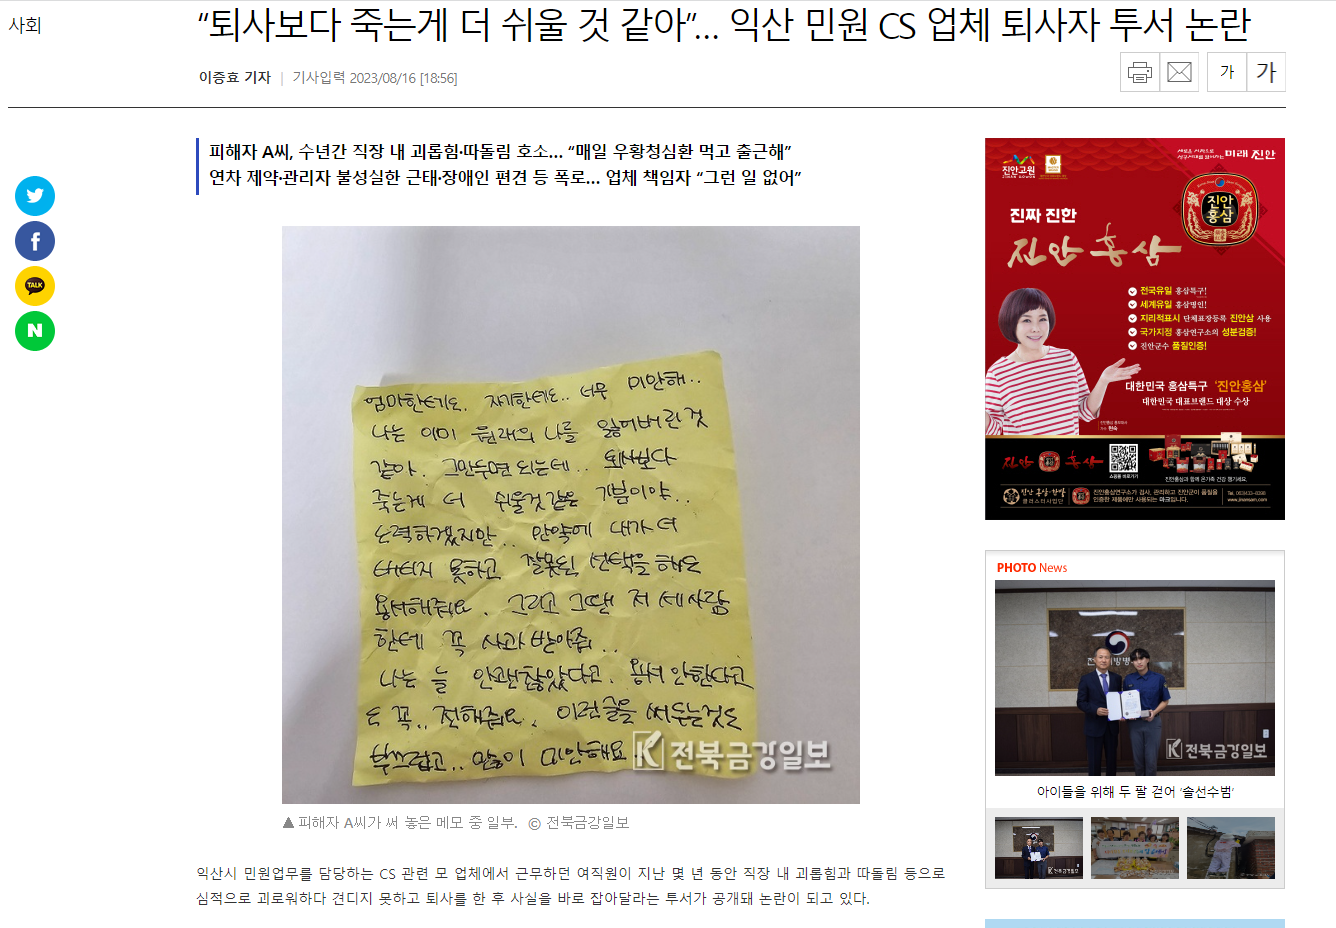 사회
“퇴사보다 죽는게 더 쉬울 것 같아”... 익산 민원 CS 업체 퇴사자 투서 논란
이증효 기자 | 기사입력 2023/08/16 [18:56]
가 가
피해자 A씨, 수년간 직장 내 괴롭힘·따돌림 호소... “매일 우황청심환 먹고 출근해”
연차 제약·관리자 불성실한 근태·장애인 편견 등 폭로... 업체 책임자 “그런 일 없어”
TALK
N
엄마한테도. 자기한테도.. 너무 미안해..
나는 이미 원래의 나를 잃어버린 것
같아. 그만두면 되는데.. 퇴사보다
죽는게 더 쉬울것 같은 기분이야..
노력하겠지만.. 만약에 내가 더
버티지 못하고 잘못된 선택을 해도
용서해줘요. 그리고 그땐 저 세사람
한테 꼭 사과 받아줘..
나는 늘 안괜찮았다고. 용서 안한다고
도 꼭.. 전해줘요. 이런글을 써두는것도
부끄럽고.. 많이 미안해요
전북금강일보
▲ 피해자 A씨가 써 놓은 메모 중 일부. © 전북금강일보
익산시 민원업무를 담당하는 CS 관련 모 업체에서 근무하던 여직원이 지난 몇 년 동안 직장 내 괴롭힘과 따돌림 등으로
심적으로 괴로워하다 견디지 못하고 퇴사를 한 후 사실을 바로 잡아달라는 투서가 공개돼 논란이 되고 있다.
진안고원
미래 진안
진안
홍삼
진짜 진한
진안 홍삼
전국유일 홍삼특구!
세계유일 홍삼명인!
지리적표시 단체표장등록 진안삼 사용
국가지정 홍삼연구소의 성분검증!
진안군수 품질인증!
대한민국 홍삼특구 ‘진안홍삼’
대한민국 대표브랜드 대상 수상
진안 홍삼
쇼핑몰 바로가기
진안홍삼과 함께 온가족 건강 챙기세요.
진안 홍삼·한방
클러스터사업단
진안홍삼연구소가 검사, 관리하고 진안군이 품질을
인증한 제품에만 사용되는 마크입니다.
PHOTO News
전북금강일보
아이들을 위해 두 팔 걷어 ‘솔선수범’